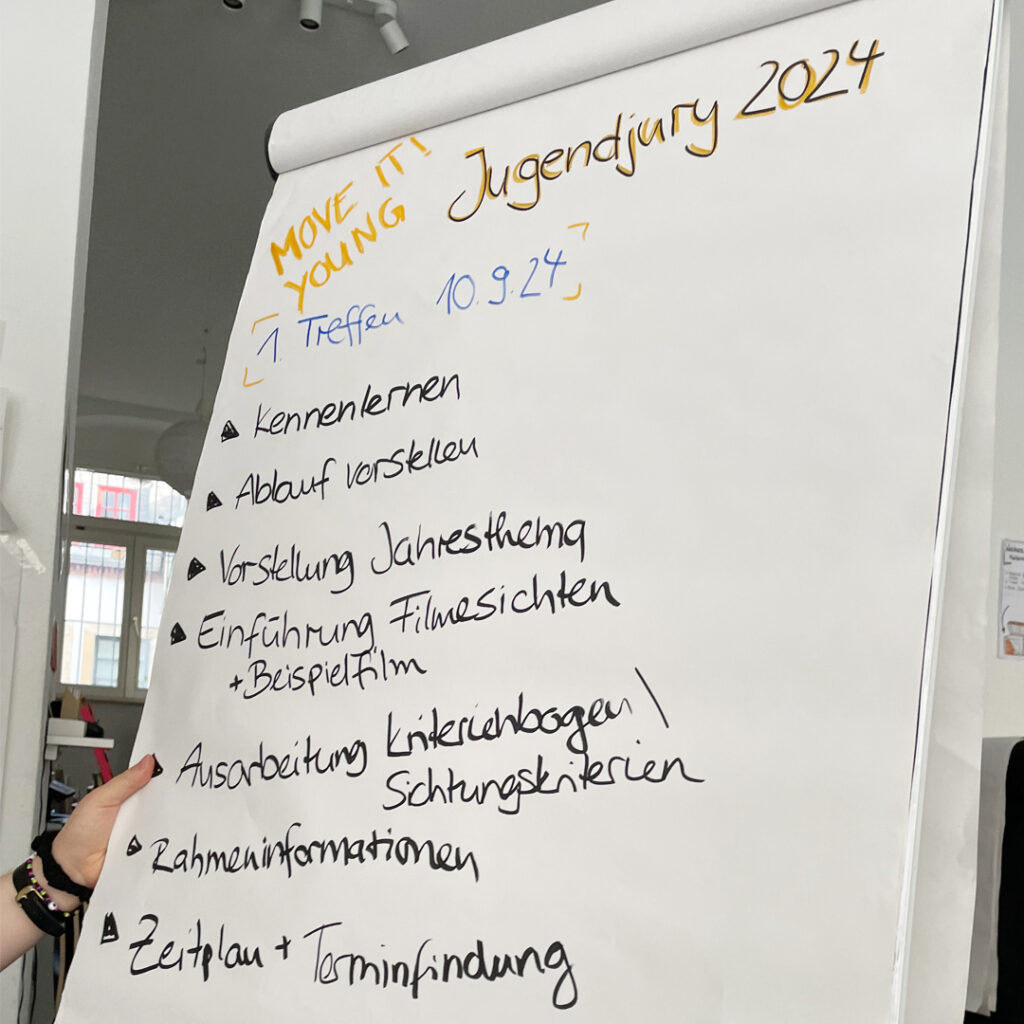 MOVE IT!
YOUNG
Jugendjury 2024
1. Treffen 10.9.24
Kennenlernen
Ablauf vorstellen
Vorstellung Jahresthema
Einführung Filmesichten
+Beispielfilm
Ausarbeitung Kriterienbogen \
Sichtungskriterien
Rahmeninformationen
Zeitplan + Terminfindung